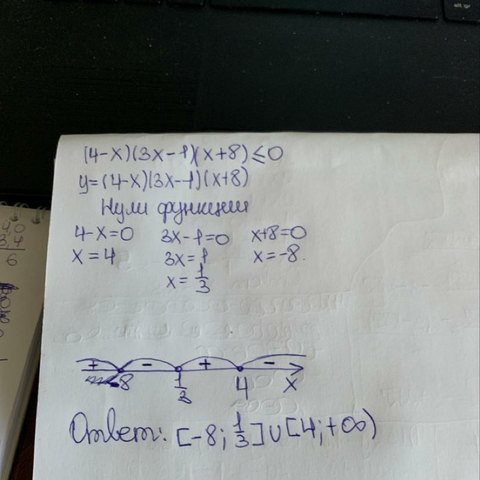 (4-x)(3x-1)(x+8)≤0
y=(4-x)(3x-1)(x+8)
Нули функции
4-x=0 3x-1=0 x+8=0
x=4 3x=1 x=-8.
x=1/3
+ - + -
-8 1/3 4 x
Ответ: [-8; 1/3]∪[4;+∞)